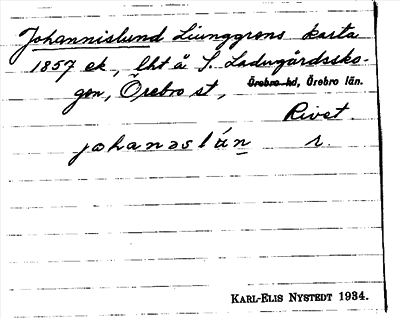 Johannislund Ljunggrens karta
1857 ek, lht å S. Ladugårdssko-
gen, Örebro st, Örebro hd, Örebro län.
Rivet.
johanəslún r.
KARL-ELIS NYSTEDT 1934.